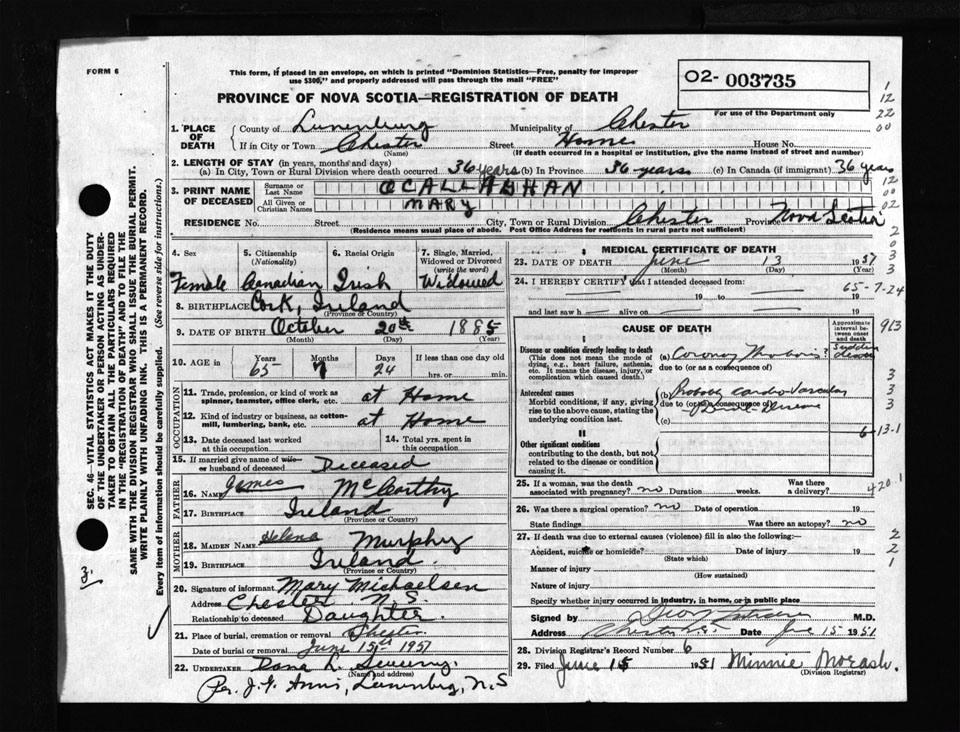 FORM 6
This form, if placed in an envelope, on which is printed "Dominion Statistics—Free, penalty for improper
use $300," and properly addressed will pass through the mail "FREE"
O2- 003735
For use of the Department only
PROVINCE OF NOVA SCOTIA—REGISTRATION OF DEATH
1. PLACE OF DEATH
County of Lunenburg Municipality of Chester
If in City or Town Chester Street Home House No.
(Name) (If death occurred in a hospital or institution, give the name instead of street and number)
2. LENGTH OF STAY (in years, months and days)
(a) In City, Town or Rural Division where death occurred 36 years (b) In Province 36 years (c) In Canada (if immigrant) 36 years
3. PRINT NAME OF DECEASED
Surname or Last Name OCALLAGHAN
All Given or Christian Names MARY
RESIDENCE No. Street City, Town or Rural Division Chester Province Nova Scotia
(Residence means usual place of abode. Post Office Address for residents in rural parts not sufficient)
4. Sex Female
5. Citizenship (Nationality) Canadian
6. Racial Origin Irish
7. Single, Married, Widowed or Divorced (write the word) Widowed
8. BIRTHPLACE Cork, Ireland
(Province or Country)
9. DATE OF BIRTH October 20th 1885
(Month) (Day) (Year)
10. AGE in Years 65 Months 7 Days 24 If less than one day old
hrs. or min.
OCCUPATION
11. Trade, profession, or kind of work as spinner, teamster, office clerk, etc. at Home
12. Kind of industry or business, as cotton-mill, lumbering, bank, etc. at Home
13. Date deceased last worked at this occupation
14. Total yrs. spent in this occupation
15. If married give name of wife or husband of deceased Deceased
FATHER
16. Name James McCarthy
17. Birthplace Ireland
(Province or Country)
MOTHER
18. Maiden Name Helena Murphy
19. Birthplace Ireland
(Province or Country)
20. Signature of informant Mary Michaelsen
Address Chester N.S.
Relationship to deceased Daughter
21. Place of burial, cremation or removal Chester
Date of burial or removal June 15th 1951
22. Undertaker Dana L.
(Name and address)
Per. J. Lunenburg, N.S
MEDICAL CERTIFICATE OF DEATH
23. DATE OF DEATH June 13 1951
(Month) (Day) (Year)
24. I HEREBY CERTIFY that I attended deceased from
19 to 19
and last saw h alive on 19
65-7-24
CAUSE OF DEATH
Approximate interval between onset and death
I
Disease or condition directly leading to death
(This does not mean the mode of dying, e.g., heart failure, asthenia, etc. It means the disease, injury, or complication which caused death.)
(a) Coronary Thrombosis? Sudden
due to (or as a consequence of)
Antecedent causes
Morbid conditions, if any, giving rise to the above cause, stating the underlying condition last.
(b) Probably cardio vascular
due to (or as a consequence of) disease
(c)
II
Other significant conditions
contributing to the death, but not related to the disease or condition causing it.
6-13-1
25. If a woman, was the death associated with pregnancy? no Duration weeks. Was there a delivery?
420.1
26. Was there a surgical operation? no Date of operation 19
State findings Was there an autopsy? no
27. If death was due to external causes (violence) fill in also the following:—
Accident, suicide or homicide? Date of injury 19
(State which)
Manner of injury
(How sustained)
Nature of injury
Specify whether injury occurred in industry, in home, or in public place
Signed by M.D.
Address Chester N.S. Date June 15 1951
28. Division Registrar's Record Number 6
29. Filed June 15 1951 Minnie Morash.
(Division Registrar)
1
12
22
00
12
00
02
2
0
3
3
963
3
3
3
2
2
1
3.
SEC. 46—VITAL STATISTICS ACT MAKES IT THE DUTY
OF THE UNDERTAKER OR PERSON ACTING AS UNDERTAKER
TO OBTAIN ALL THE PARTICULARS REQUIRED
IN THE "REGISTRATION OF DEATH" AND TO FILE THE
SAME WITH THE DIVISION REGISTRAR WHO SHALL ISSUE THE BURIAL PERMIT.
WRITE PLAINLY WITH UNFADING INK. THIS IS A PERMANENT RECORD.
Every item of information should be carefully supplied. (See reverse side for instructions.)